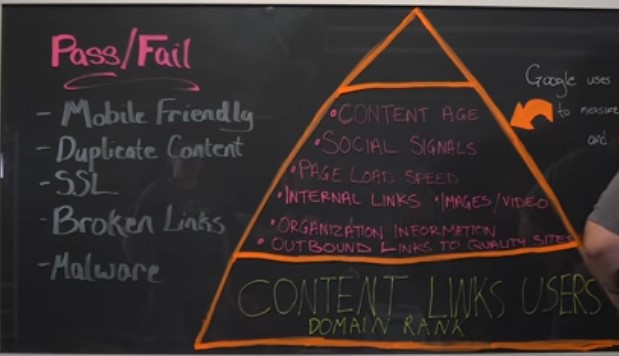 Pass/Fail
- Mobile Friendly
- Duplicate Content
- SSL
- Broken Links
- Malware
• CONTENT AGE
• SOCIAL SIGNALS
• PAGE LOAD SPEED
• INTERNAL LINKS • IMAGES/VIDEO
• ORGANIZATION INFORMATION
• OUTBOUND LINKS TO QUALITY SITES
CONTENT LINKS USERS
DOMAIN RANK
Google uses
to measure
and